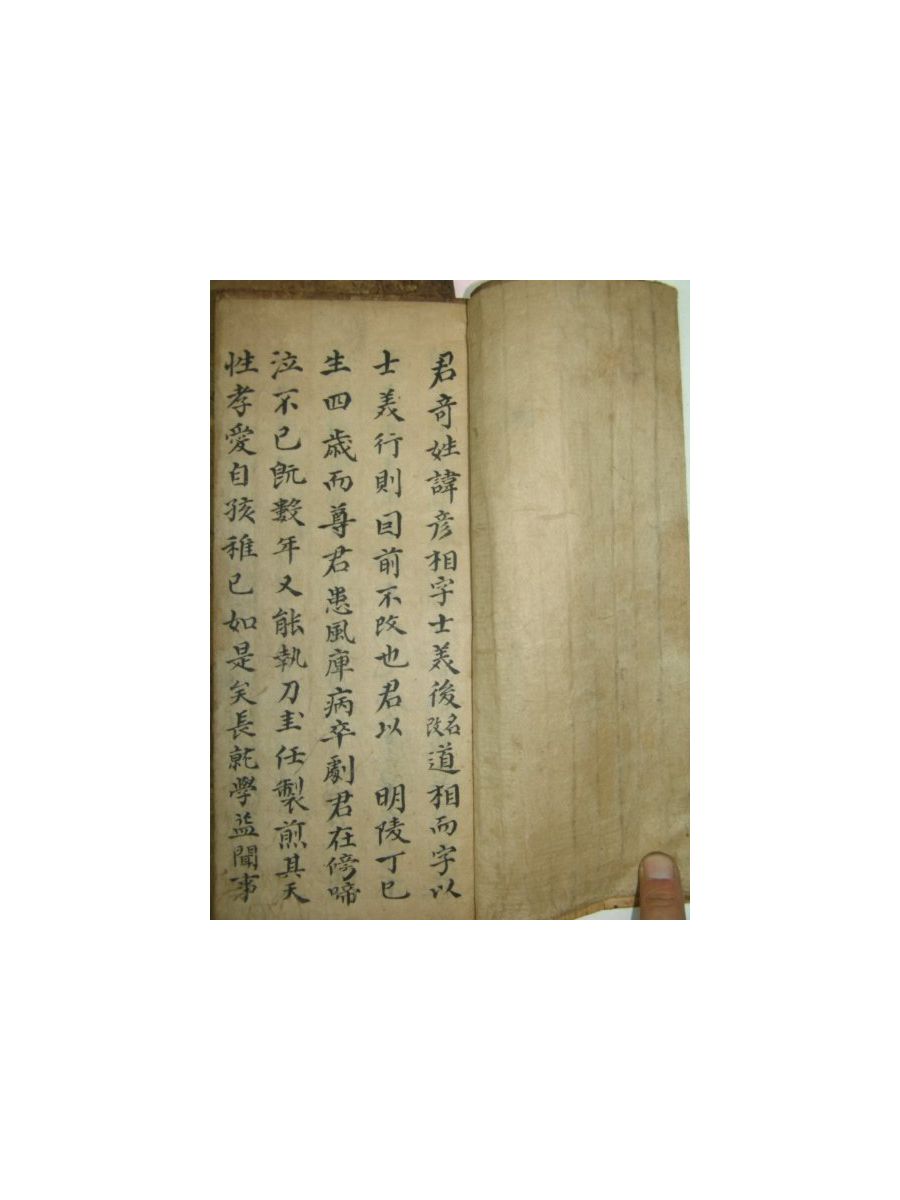 君奇姓諱彦相字士羙後改名道相而字以
士羙行則因前不改也君以 明陵丁巳
生四歳而尊君患風庳病卒劇君在傍啼
泣不已旣數年又能執刀圭任製煎其天
性孝愛自孩稚已如是矣長就學益聞事